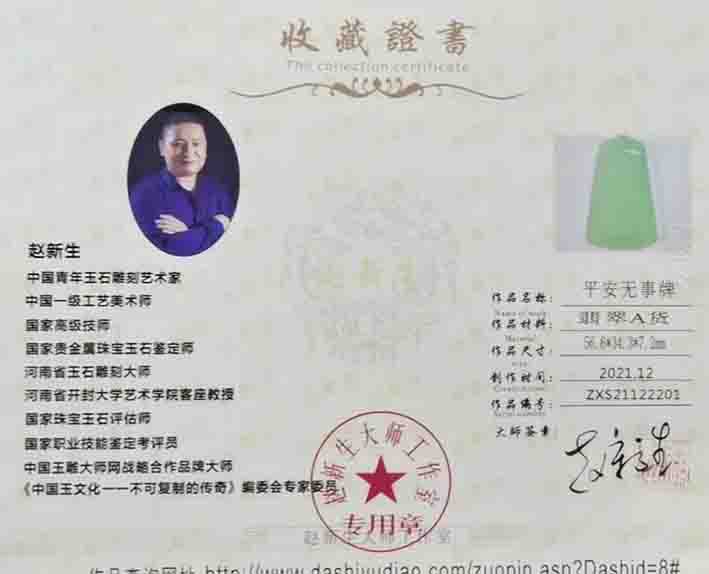 收藏證書
The collection certificate
赵新生
中国青年玉石雕刻艺术家
中国一级工艺美术师
国家高级技师
国家贵金属珠宝玉石鉴定师
河南省玉石雕刻大师
河南省开封大学艺术学院客座教授
国家珠宝玉石评估师
国家职业技能鉴定考评员
中国玉雕大师网战略合作品牌大师
《中国玉文化——不可复制的传奇》编委会专家委员
作品名称： 平安无事牌
Name of work
作品材料： 翡翠A货
Material
作品尺寸： 56.6*34.3*7.2mm
制作时间： 2021.12
作品编号： ZXS21122201
大师签章： 赵新生
赵新生大师工作室
专用章
赵新生大师工作室
作品查询网址 http://www.dashiyudiao.com/zuopin.asp?Dashid=8#